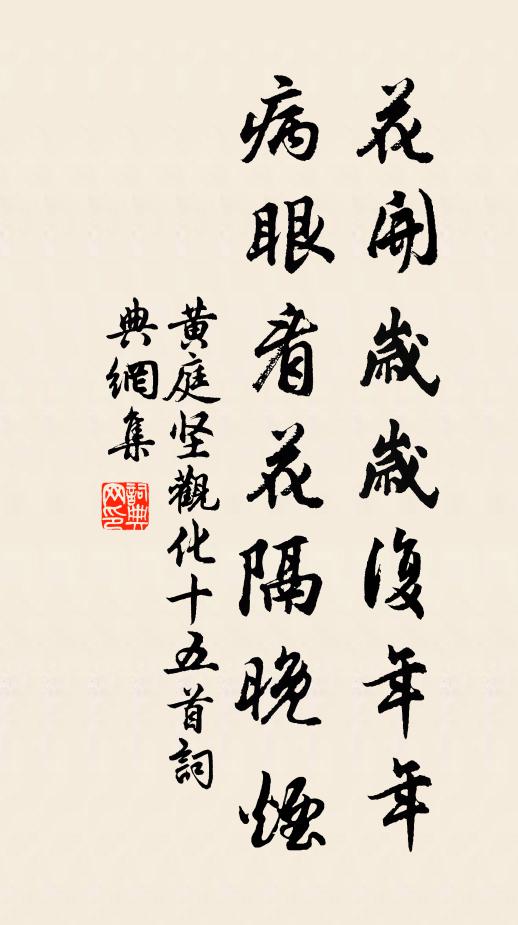 花開歲歲復年年
病眼看花隔晚煙
黃庭坚觀化十五首詞
典網集
詞典
网印